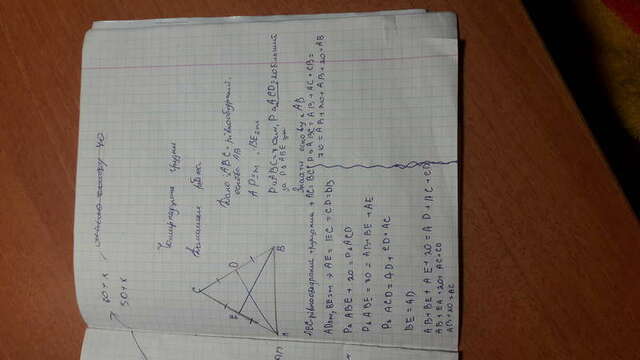 60+x
50+x
40
Чотирнадцяте грудня
Домашня робота
C
E D
A B
Дано: ABC - рівнобедрений
основа AB
AD=m, BE=m
P△ABC=70см, P△ACD=20 більший
за P△ABE
Знайти основу AB
ABC-рівнобедрений трикутник → AC=BC
AD=m, BE=m → AE = EC = CD = DB
P△ ABE + 20 = P△ACD
P△ ABE = 70 = AB+BE+AE
P△ ACD = AD + CD + AC
BE = AD
AB+BE+AE+20 = AD+AC+CD
AB+EA+20 = AC+CD
AB+20=AC
P△ABC = AB + AC + CB =
70 = AB+20+AB+20+AB